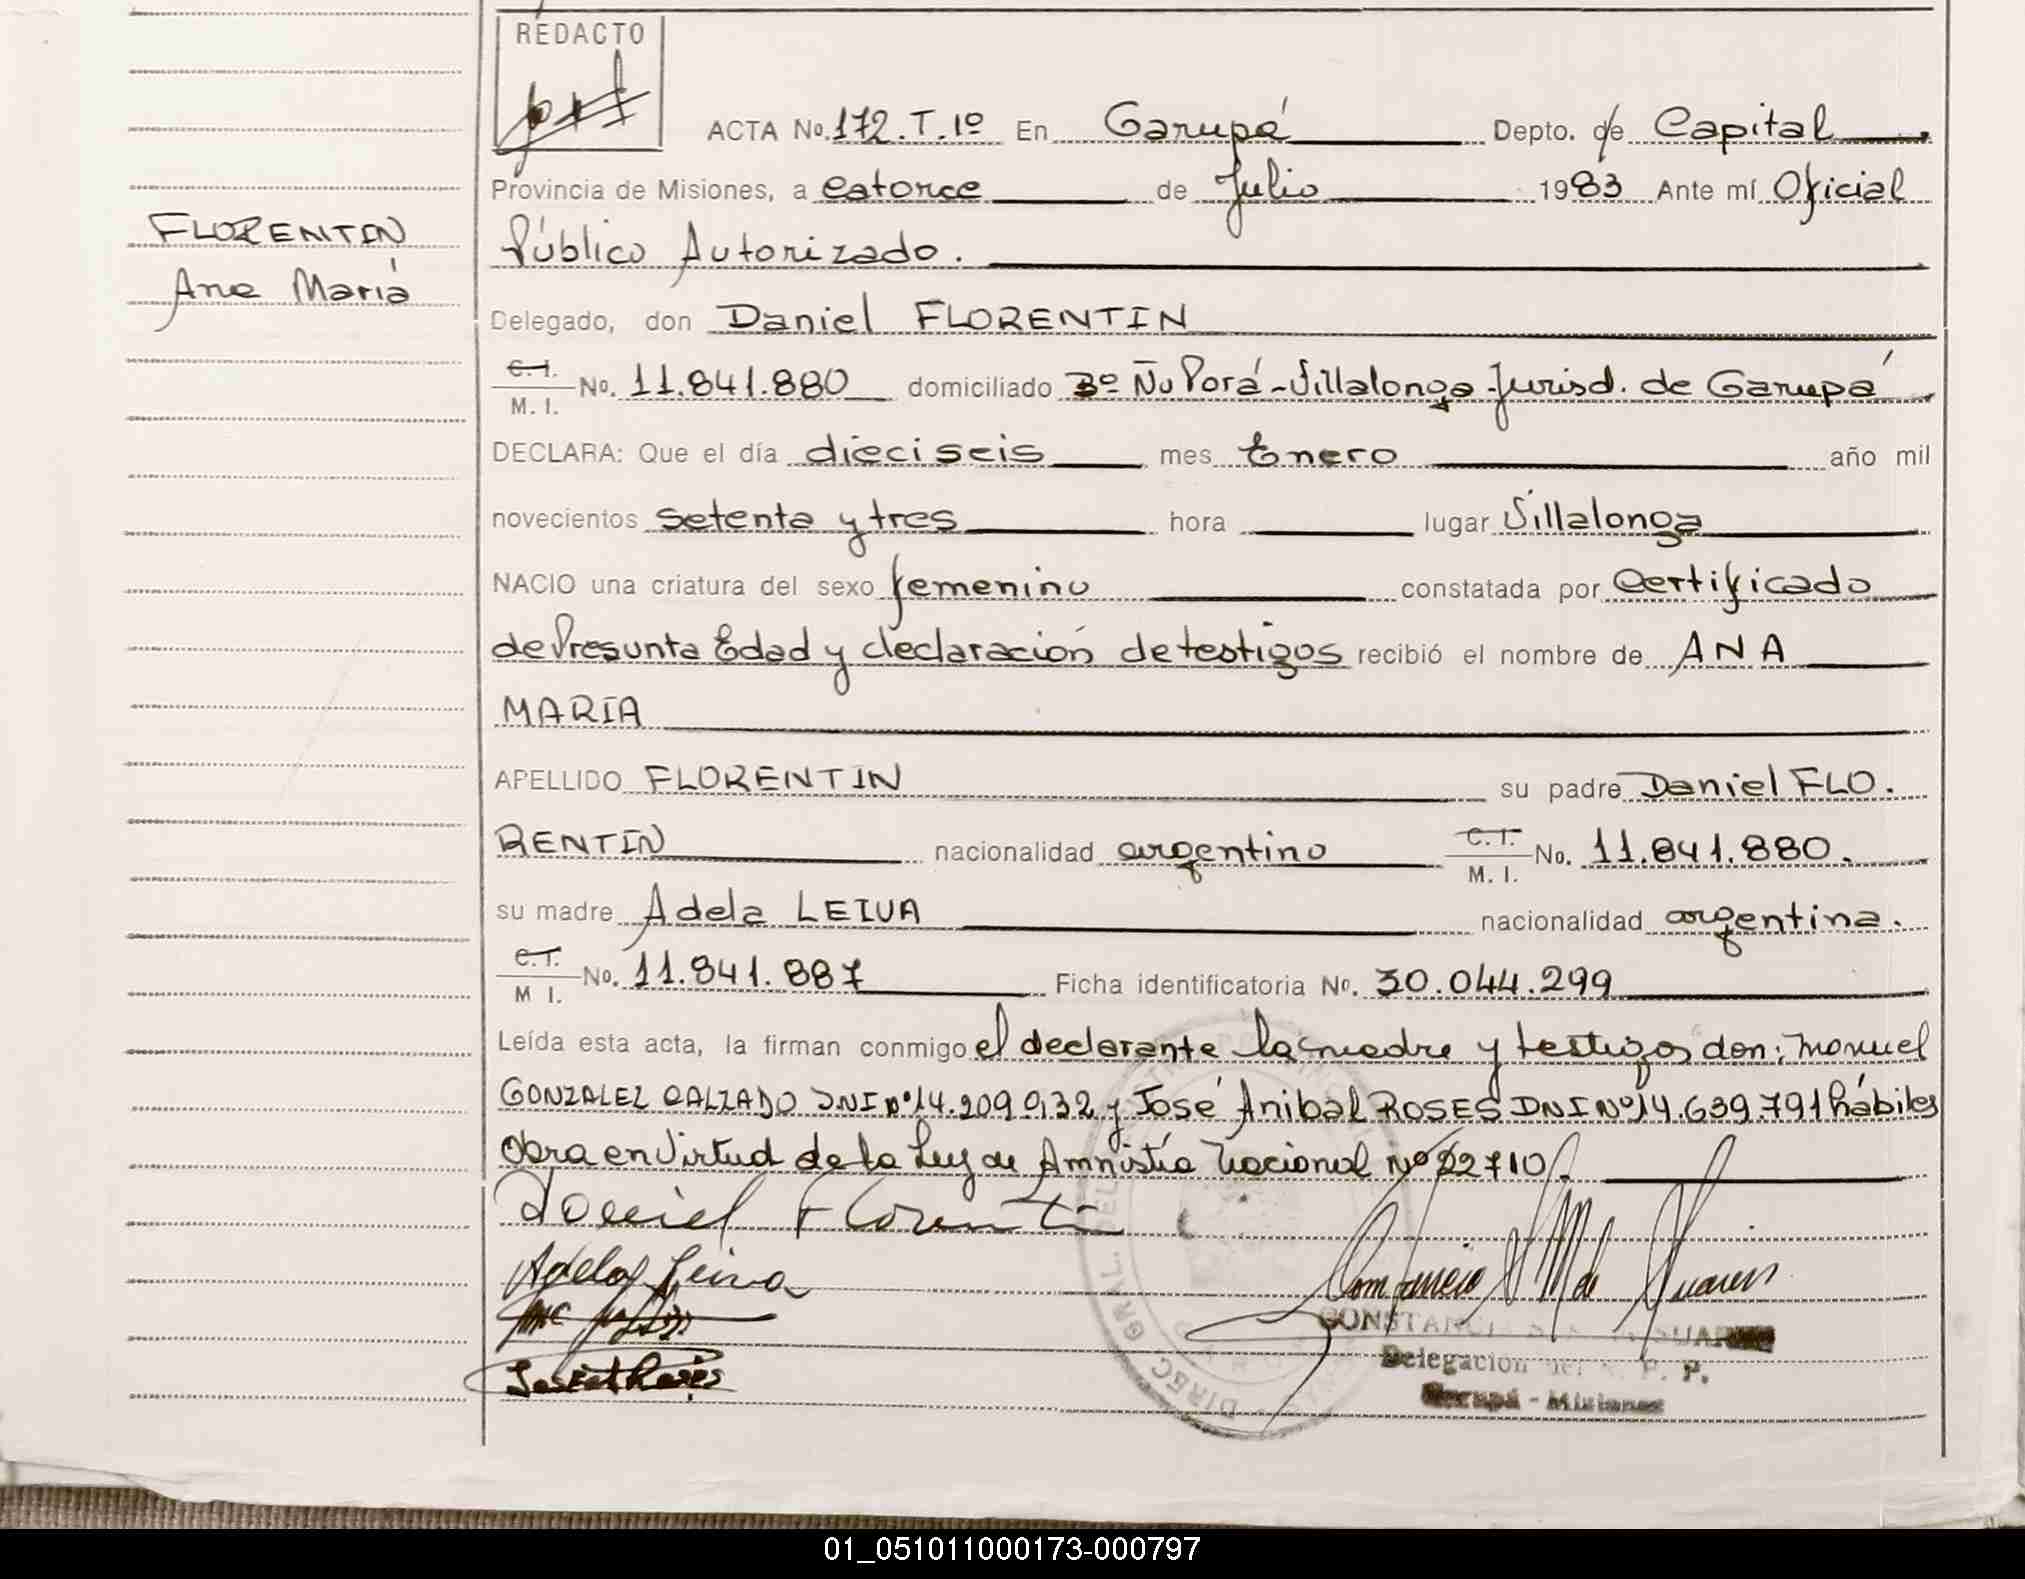 REDACTO
ACTA No. 172.T.1º En Garupá Depto. de Capital
Provincia de Misiones, a catorce de Julio 1983 Ante mí Oficial
FLORENTIN
Público Autorizado.
Ana María
Delegado, don Daniel FLORENTIN
C.I. M.I. No. 11.841.880 domiciliado Bº Ñu Porá-Villalonga-Jurisd. de Garupá
DECLARA: Que el día dieciseis mes Enero año mil
novecientos setenta y tres hora lugar Villalonga
NACIO una criatura del sexo femenino constatada por Certificado
de Presunta Edad y declaración de testigos recibió el nombre de ANA
MARIA
APELLIDO FLORENTIN su padre Daniel FLO.
RENTIN nacionalidad argentino C.I. M.I. No. 11.841.880.
su madre Adela LEIVA nacionalidad argentina.
C.I. M I. No. 11.841.887 Ficha identificatoria No. 30.044.299
Leída esta acta, la firman conmigo el declarante la madre y testigos don: Manuel
GONZALEZ CALZADO DNI nº 14.209.032 y José Anibal ROSES DNI Nº 14.639.791 hábiles
Obra en Virtud de la Ley de Amnistía Nacional Nº 22710.
Daniel Florentin
Adela Leiva
CONSTANCIA
Delegación P. P.
Garupá - Misiones
01_051011000173-000797